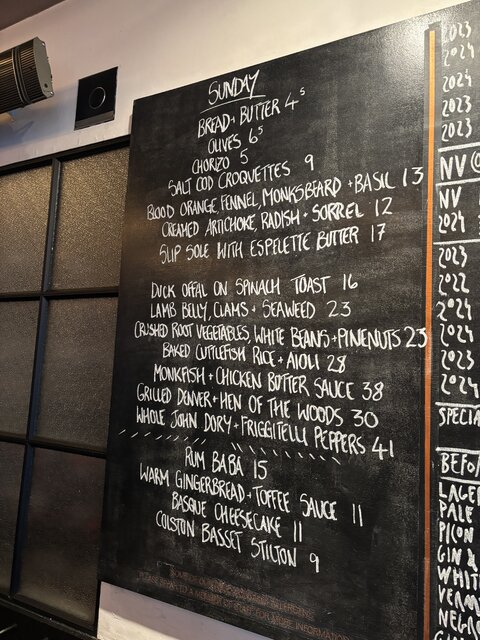 SUNDAY
BREAD + BUTTER 4⁵
OLIVES 6⁵
CHORIZO 5
SALT COD CROQUETTES 9
BLOOD ORANGE, FENNEL, MONKSBEARD + BASIL 13
CREAMED ARTICHOKE, RADISH + SORREL 12
SLIP SOLE WITH ESPELETTE BUTTER 17
DUCK OFFAL ON SPINACH TOAST 16
LAMB BELLY, CLAMS + SEAWEED 23
CRUSHED ROOT VEGETABLES, WHITE BEANS + PINENUTS 23
BAKED CUTTLEFISH RICE + AIOLI 28
MONKFISH + CHICKEN BUTTER SAUCE 38
GRILLED DENVER + HEN OF THE WOODS 30
WHOLE JOHN DORY + FRIGGITELLI PEPPERS 41
RUM BABA 15
WARM GINGERBREAD + TOFFEE SAUCE 11
BASQUE CHEESECAKE 11
COLSTON BASSET STILTON 9
2023
2024
2024
2023
2023
NV
NV
2024
2023
2022
2024
2024
2023
2024
SPECIA
BEFO
LAGE
PALE
PICON
GIN &
WHIT
VERM
NEGR